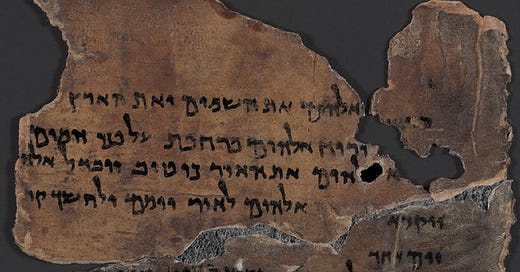 אלהים את השמים ואת הארץ
ורוח אלהים מרחפת על פני המים
אלהים את האור כי טוב ויבדל אלה
אלהים לאור יומם ולחשך ק